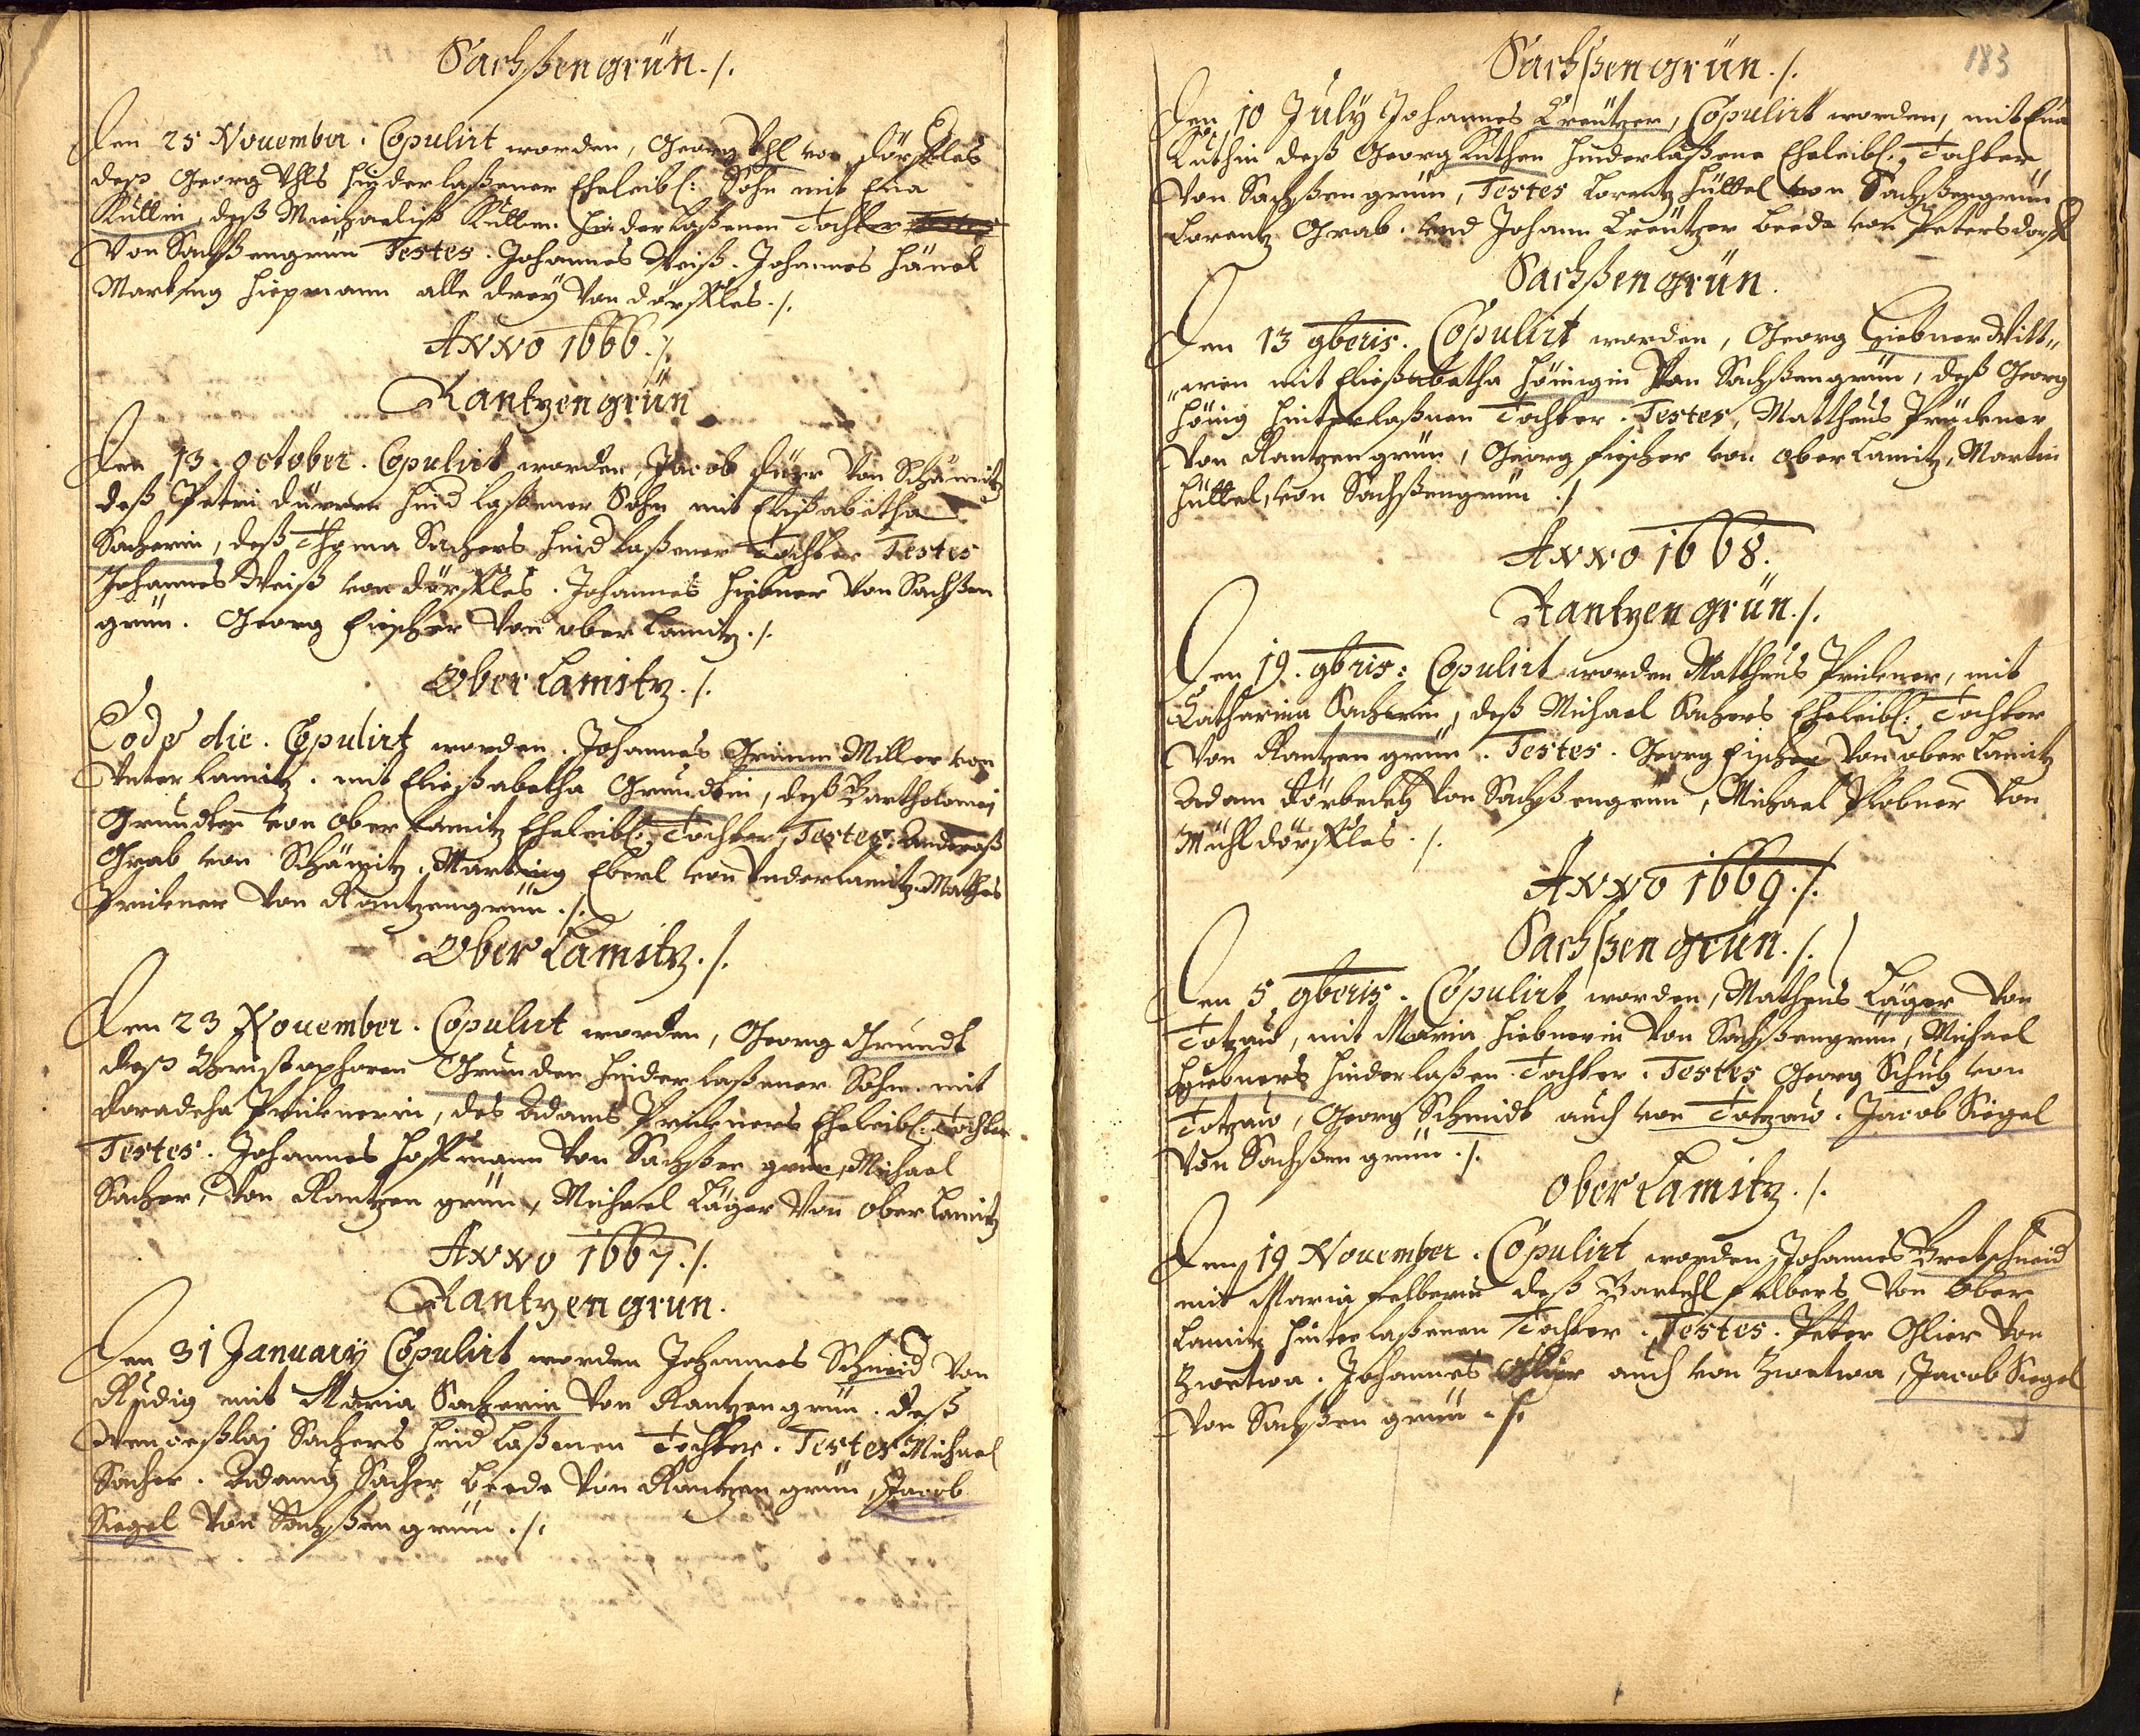 Sachßengrün ./.
Den 25 November. Copulirt worden, Georg Uhl von Dörfles
deß Georg Uhls hinderlaßener Eheleibl: Sohn mit Eva
Küttin, deß Michaeliß Kütten hinderlaßenen Tochter
Von Sachßengrün Testes. Johannes Weiß. Johannes Hänel
Marting Hiepmann alle drey von Dörfles ./.
Anno 1666 ./.
Rantzengrün
Den 13 october. Copulirt worden, Jacob Dürr von Schämitz
deß Petri Dürren hind laßener Sohn mit Elisabetha
Sacherin, deß Thoma Sachers hindlaßener Tochter Testes
Johannes Weiß von Dörfles. Johannes Hiebner von Sachßen
grün. Georg Fischer von ober Lamitz ./.
Ober Lamitz ./.
Eodē die. Copulirt worden. Johannes Grimm Miller von
Unter Lamitz. mit Eliesabetha Grundtin, deß Bartholomej
Grundten von Ober Lamitz Eheleibl: Tochter, Testes: Andreaß
Grab von Schämitz, Marting Eberl von Underlamitz Mathes
Prückner von Rantzengrün ./.
Ober Lamitz ./.
Den 23 November. Copulirt worden, Georg Grundt
deß Christophoren Grunden hinderlaßener Sohn mit
Doradeha Prücknerin, des Adams Prückners Eheleibl: Tochter.
Testes. Johannes Hoffmann von Sachßen grün, Michael
Sacher, von Rantzen grün, Michael Läger von Ober Lamitz
Anno 1667 ./.
Rantzengrün.
Den 31 January Copulirt worden Johannes Schmid von
Rudig mit Maria Sacherin von Rantzen grün. deß
Wenceßlaj Sachers hind laßenen Tochter. Testes Michael
Sacher. Adamus Sacher beede von Rantzen grün, Jacob
Siegel von Sachßen grün ./.
183
Sachßengrün ./.
Den 10 July Johannes Creützer, Copulirt worden, mit Eva
Küthin deß Georg Küthen hinderlaßene Eheleibl: Tochter
Von Sachßengrün, Testes Lorentz Hüttel von Sachßengrün
Lorentz Grab. und Johann Creützer beede von Petersdorff
Sachßengrün.
Den 13 9beris. Copulirt worden, Georg Hiebner Witt„
„wer mit Eließabetha Hönigin von Sachßengrün, deß Georg
Hönig hinterlaßnen Tochter. Testes, Matthaus Prückner
von Rantzengrün, Georg Fischer von ober Lamitz, Martin
Hüttel, von Sachßengrün ./.
Anno 1668.
Rantzengrün ./.
Den 19. 9bris: Copulirt worden Mattheus Prückner, mit
Catharina Sacherin, deß Michael Sachers Eheleibl: Tochter
von Rantzengrün. Testes. Georg Fischer von ober Lamitz
Adam Dörbeck von Sachßengrün, Michael Plobner von
Mühldörfles ./.
Anno 1669 ./.
Sachßengrün ./.
Den 5 9beris. Copulirt worden, Matheus Läger von
Totzau, mit Maria Hiebnerin von Sachßengrün, Michael
Hiebners hinderlaßen Tochter. Testes Georg Schug von
Totzau, Georg Schmidt auch von Totzau. Jacob Siegel
von Sachßen grün ./.
Ober Lamitz ./.
Den 19 November. Copulirt worden, Johannes Bretschneid
mit Maria Felberin deß Bartehl Felbers von Ober
Lamitz hinterlaßenen Tochter. Testes. Peter Glier von
Zwetwa. Johannes Glier auch von Zwetwa, Jacob Siegel
von Sachßen grün ./.